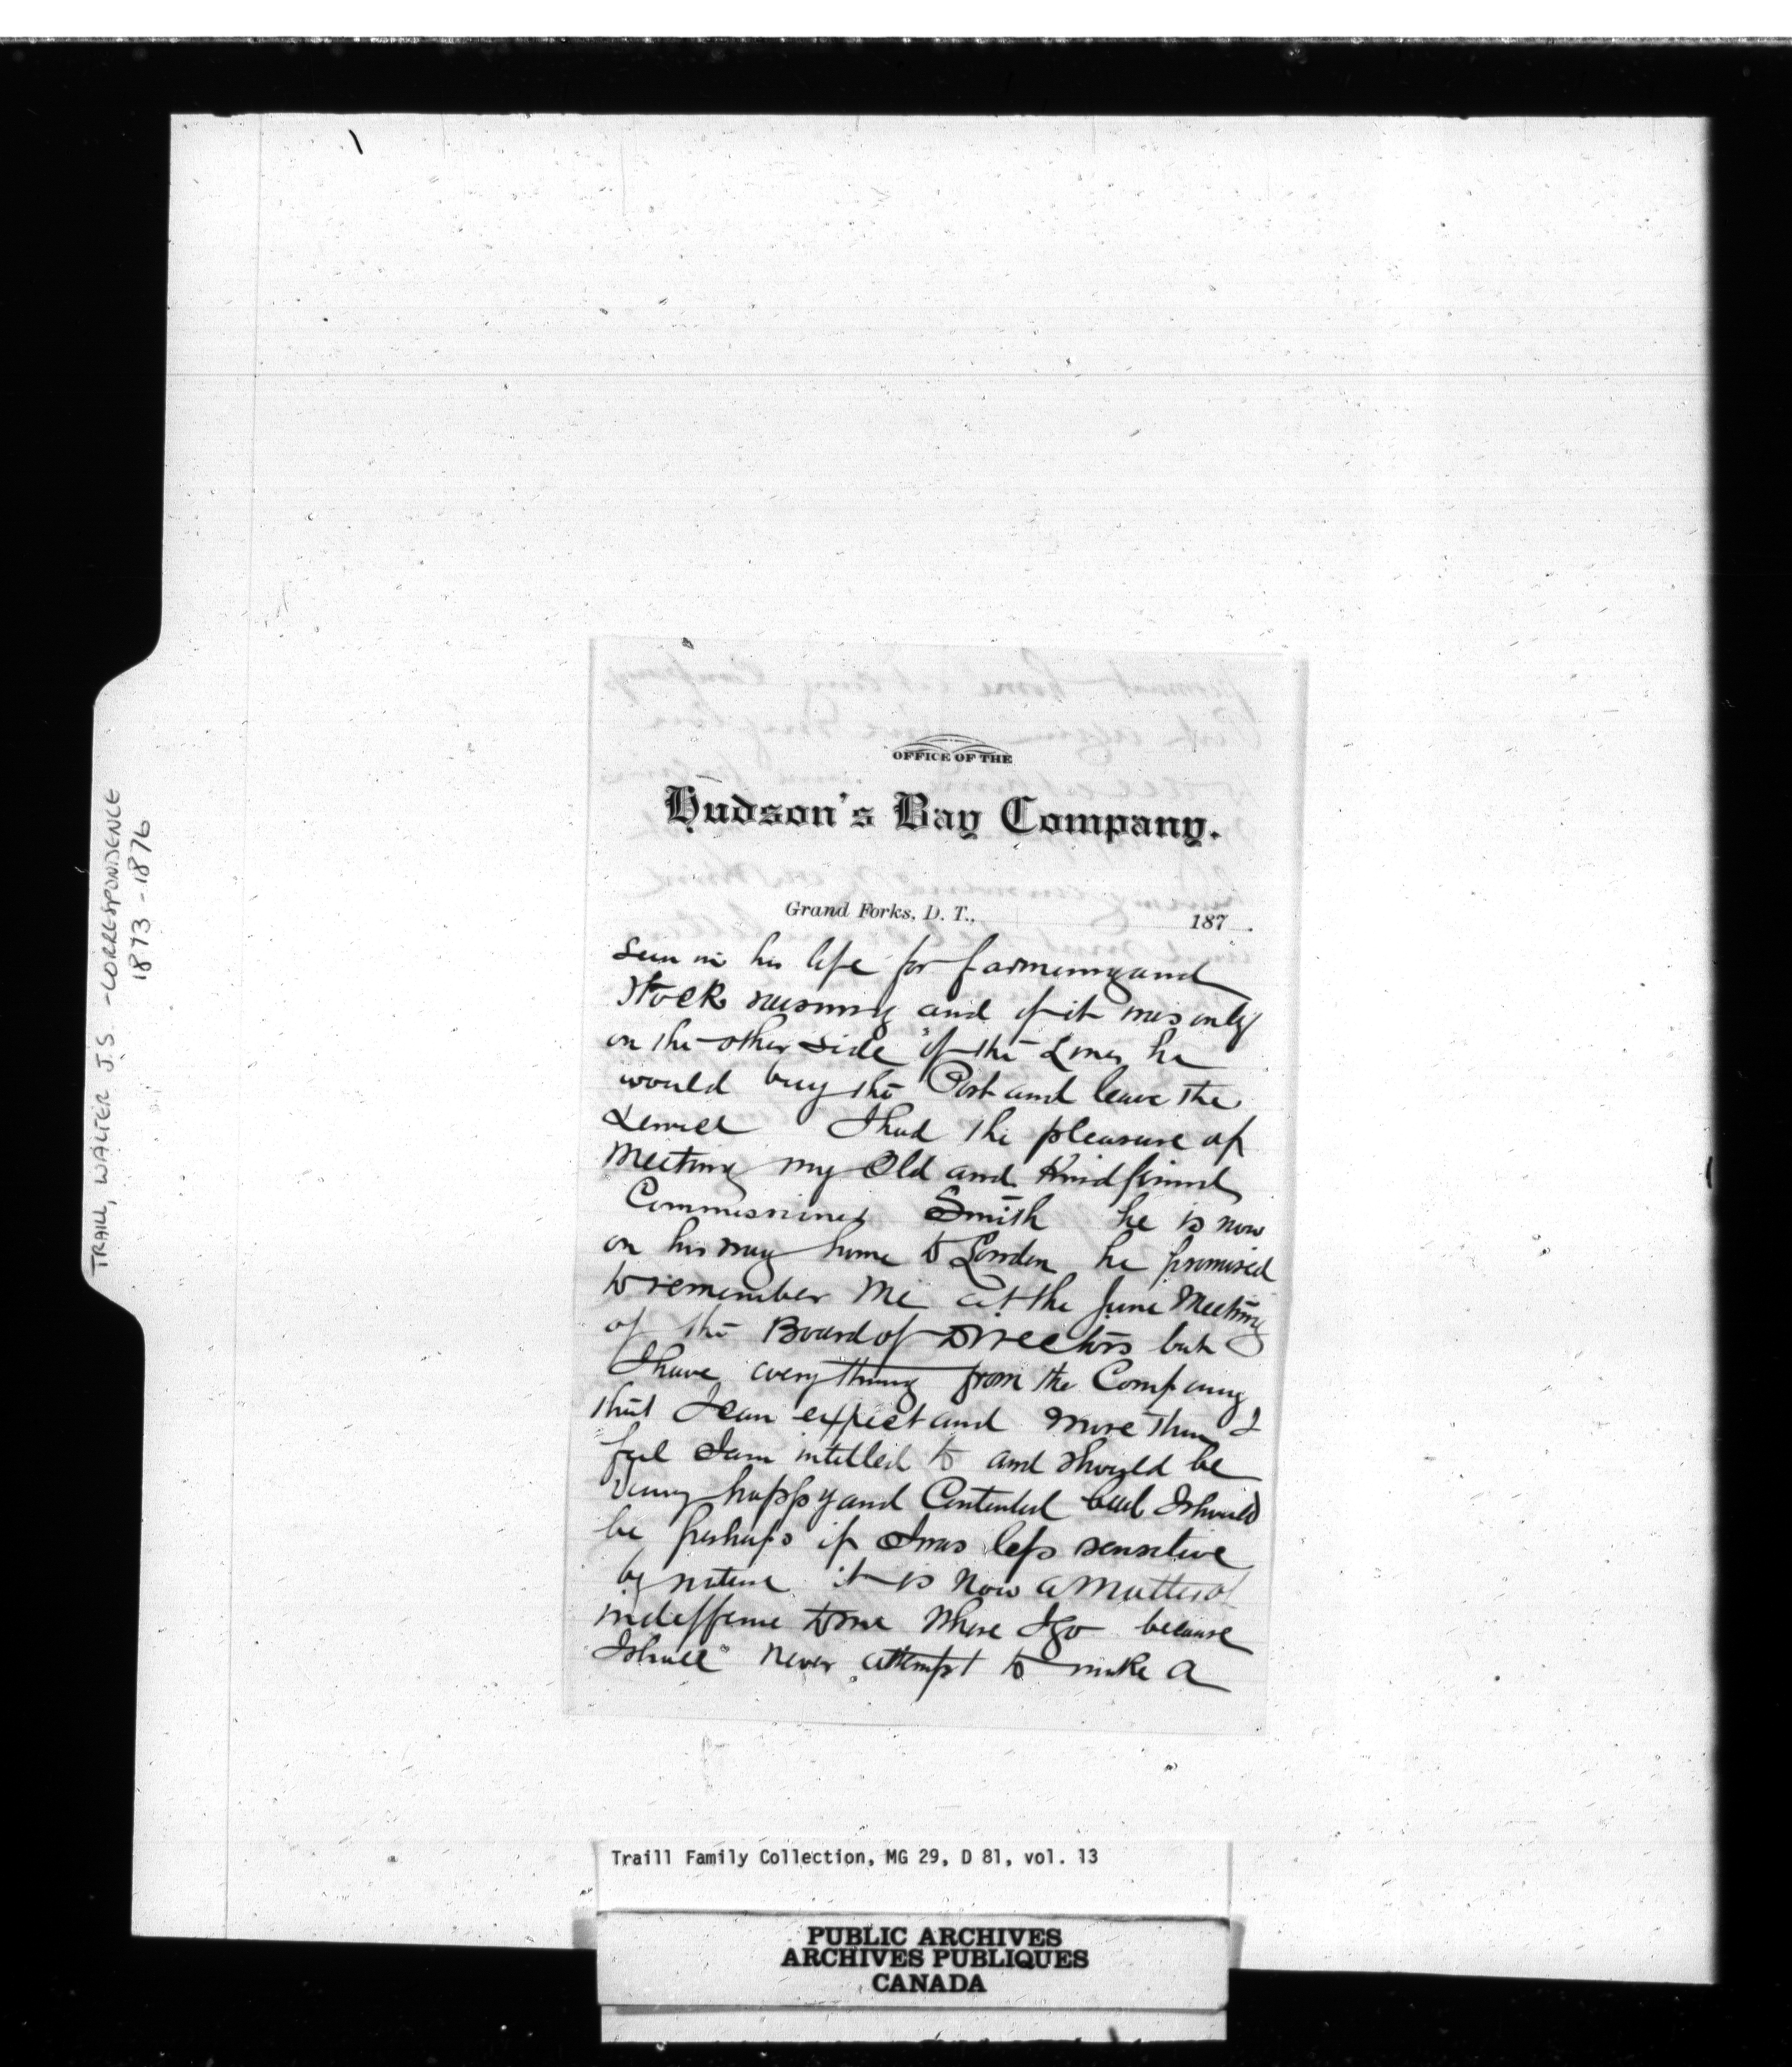 TRAILL, WALTER J.S. - CORRESPONDENCE
1873-1876
OFFICE OF THE
Hudson's Bay Company.
Grand Forks, D. T., 187 .
seen in his life for farming and
stock raising and if it was only
on the other side of the Lines he
would buy the Post and leave the
I had the pleasure of
Meeting my Old and Kind friend
Commissioner Smith he is now
on his way home to London he promised
to remember Me at the June Meeting
of the Board of Directors but
I have everything from the Company
that I can expect and More than I
feel I am intitled to and should be
Very happy and Contented I should
be perhaps if I was less sensitive
by nature it is Now a Matter of
indifference to me Where I go because
I shall Never attempt to make a
Traill Family Collection, MG 29, D 81, vol. 13
PUBLIC ARCHIVES
ARCHIVES PUBLIQUES
CANADA